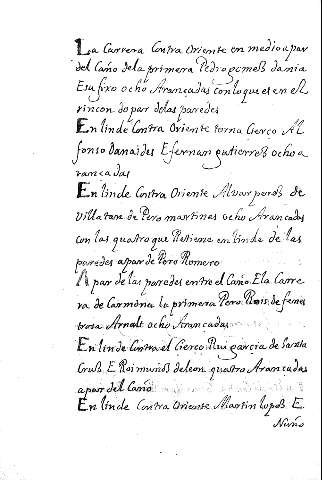 La Carrera Contra Oriente en medio apar
del Caño dela primera Pedro gomeß damia
E su fixo ocho Arançadas con lo que es en el
rincon do par delas paredes
En linde Contra Oriente torna Cierço Al
fonso Danaides E fernan gutierreß ocho a
rancadas
En linde Contra Oriente Alvar peroß de
Villa tan de Pero martines ocho Arancadas
con las quatro que Retiene en linde de las
paredes apar de Pero Romero
A par de las paredes entre el Caño. E la Carre
ra de Carmona la primera Pero Ruis de
trosa Arnalt ocho Arancadas
En linde Contra el Cierco Rui garcia de Santa
Cruß E Roi muñoß de leon quatro Arancadas
apar del Caño
En linde Contra Oriente Martin lopeß E.
Nuño